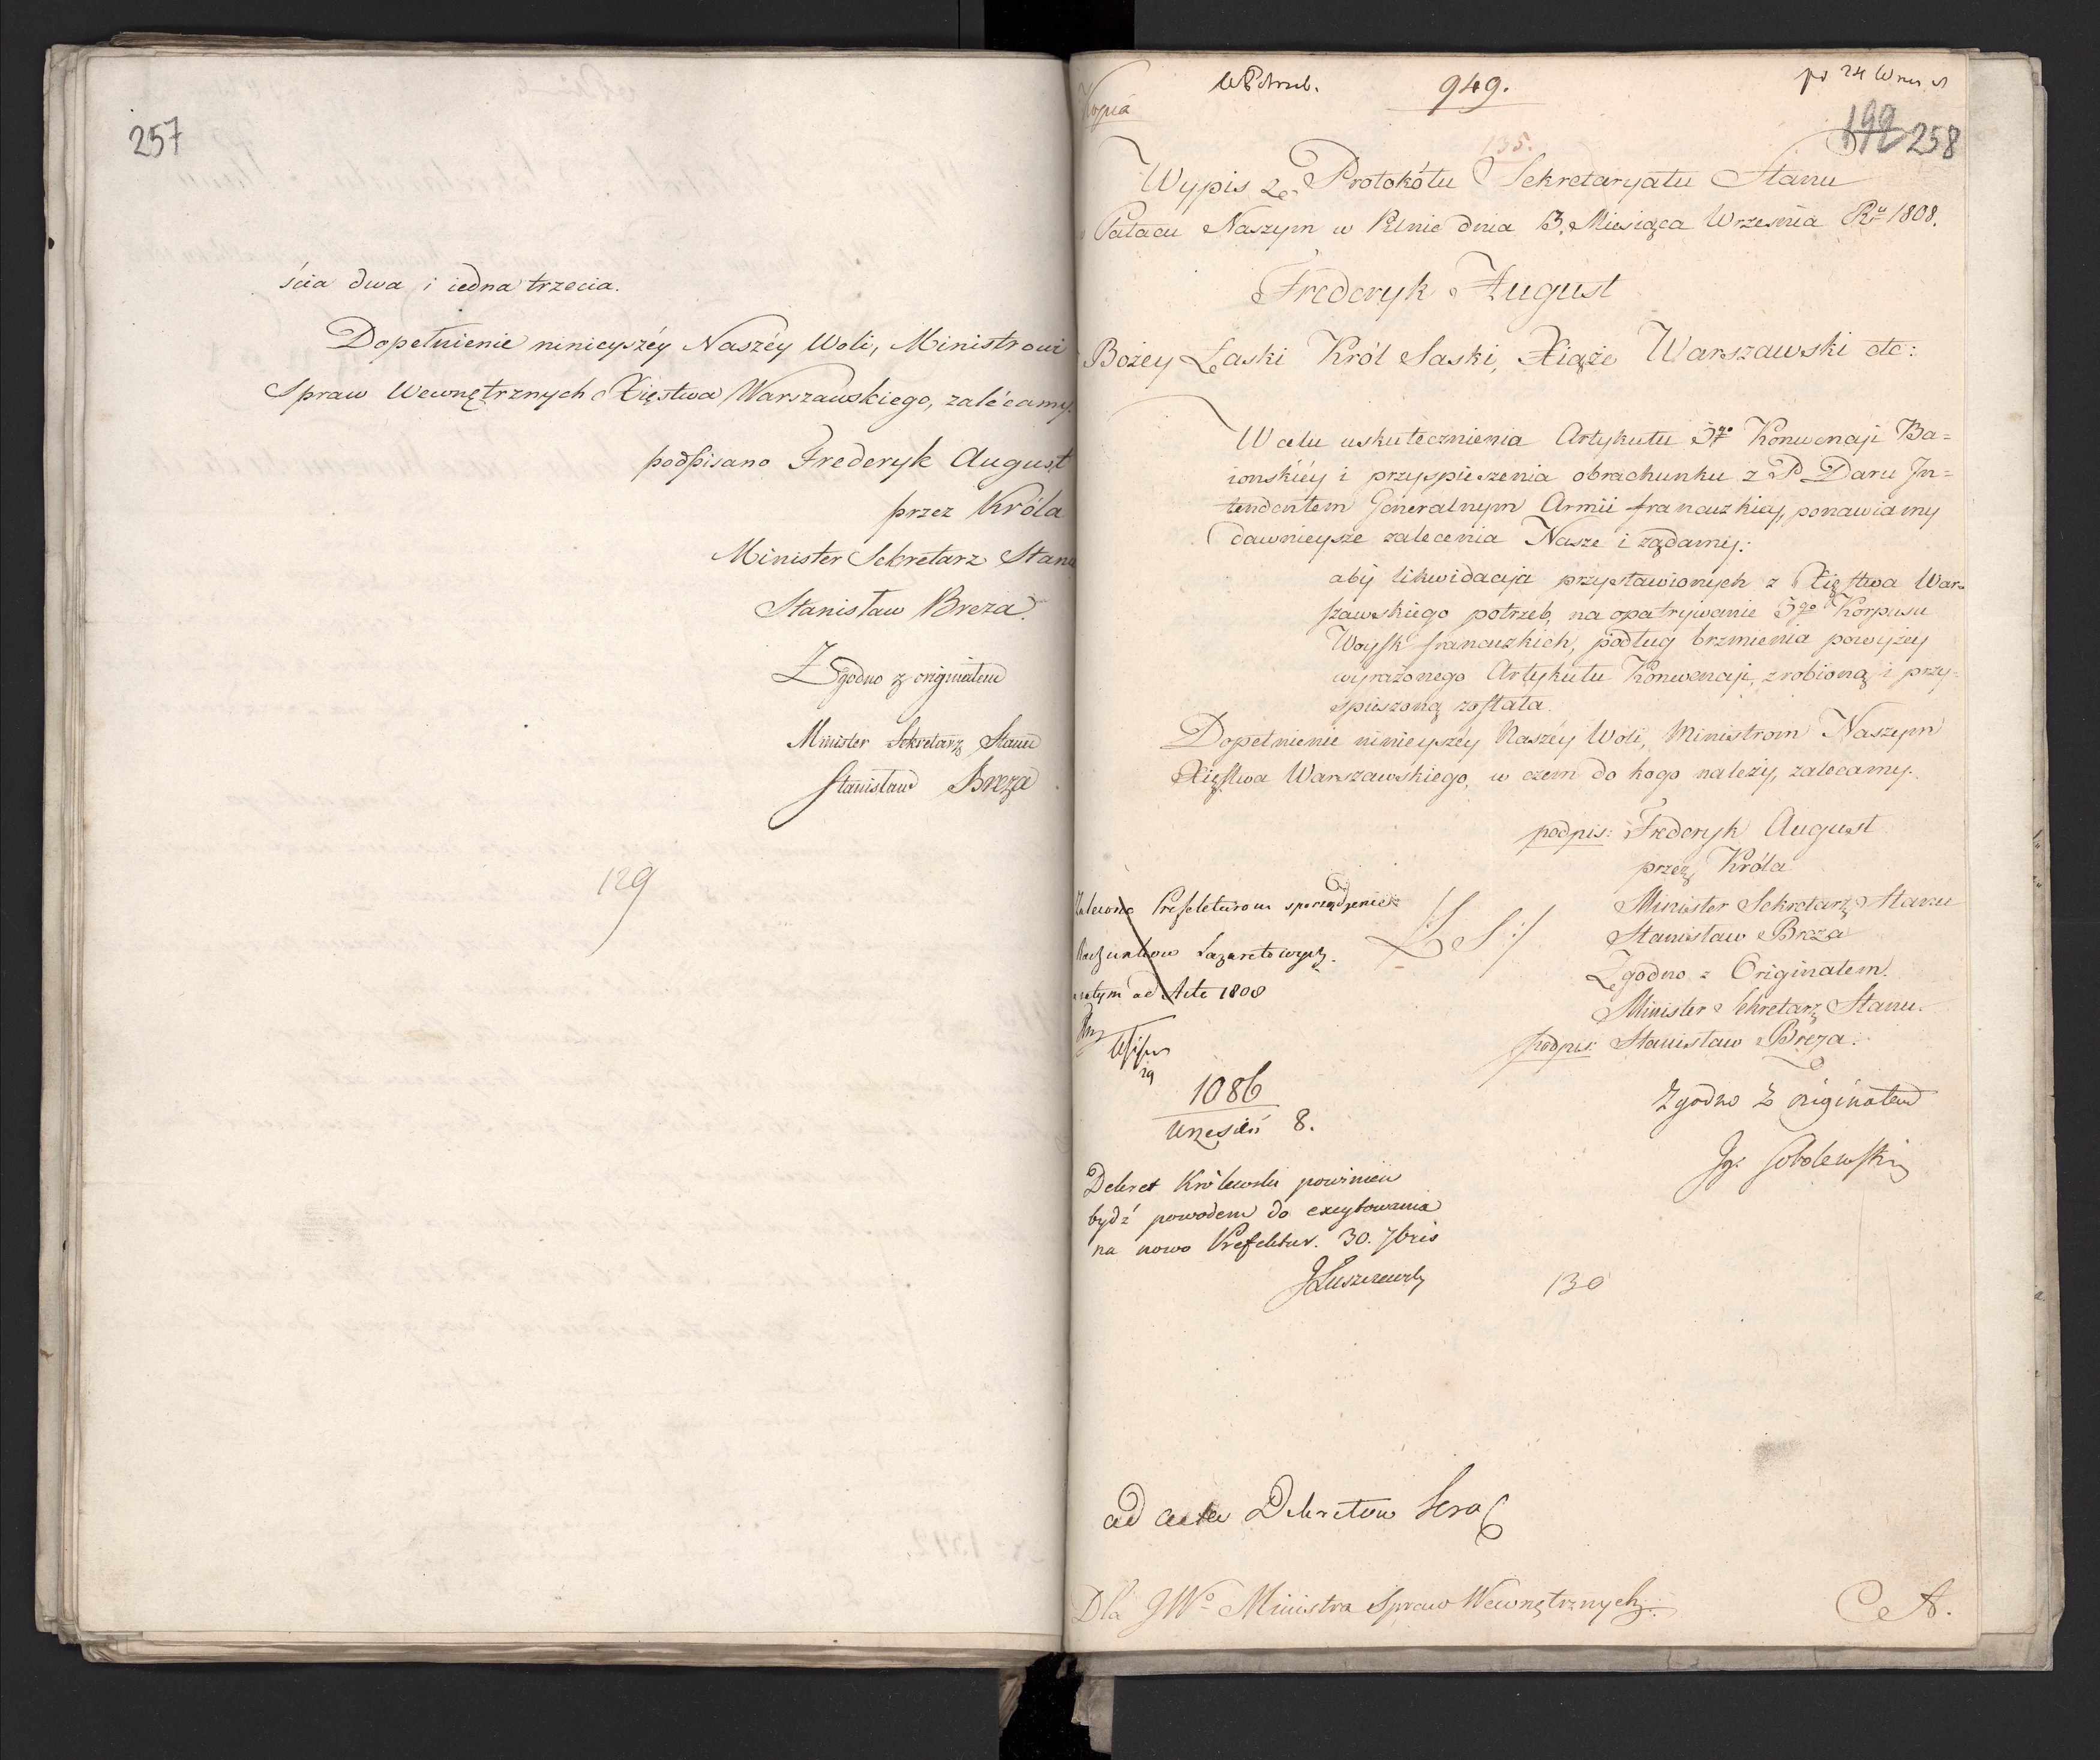 257
ścia dwa i iedna trzecia.
Dopełnienie ninieyszéy Naszéy Woli, Ministrowi
Spraw Wewnętrznych Xięstwa Warszawskiego, zalécamy.
podpisano Frederyk August
przez Króla
Minister Sekretarz Stanu
Stanisław Breza.
Zgodno z originałem
Minister Sekretarz Stanu
Stanisław Breza
129
Kopia
949.
192 258
135.
Wypis z Protokółu Sekretaryatu Stanu
Pałacu Naszym w Pilnic dnia 13. Miesiąca Września Ru 1808.
Frederyk August
Bożey Łaski Król Saski, Xiąże Warszawski etc:
W celu uskutecznienia Artykułu 5go Konwencyi Ba=
ionskiéy i przyspieszenia obrachunku z P. Daru In=
tendentem Generalnym Armii francuzkiey, ponawiamy
dawnieysze zalecenia Nasze i żądamy:
aby likwidacyja przystawionych z Xięstwa War=
szawskiego potrzeb, na opatrywanie 5go Korpusu
Woysk francuzkich, podług brzmienia powyżey
wyrażonego Artykułu Konwencyi, zrobioną i przy=
spieszoną została.
Dopełnienie ninieyszéy Naszéy Woli, Ministrom Naszym
Xięstwa Warszawskiego, w czem do kogo należy, zalecamy.
podpis: Frederyk August
przez Króla
Minister Sekretarz Stanu
Stanisław Breza
Zgodno z Originałem.
Minister Sekretarz Stanu.
podpis: Stanisław Breza.
Zgodno z originałem
Ig. Sobolewski
Zalecono Prefekturom sporządzenie
Rachunków Lazaretowych.
ad Acta 1808
/LS:/
1086
Wrzesień 8.
Dekret Królewski powinien
bydź powodem do excytowania
na nowo Prefektur. 30. 7bris
JŁuszczewski
130
ad acta Dekretów
Dla JWo Ministra Spraw Wewnętrznych.